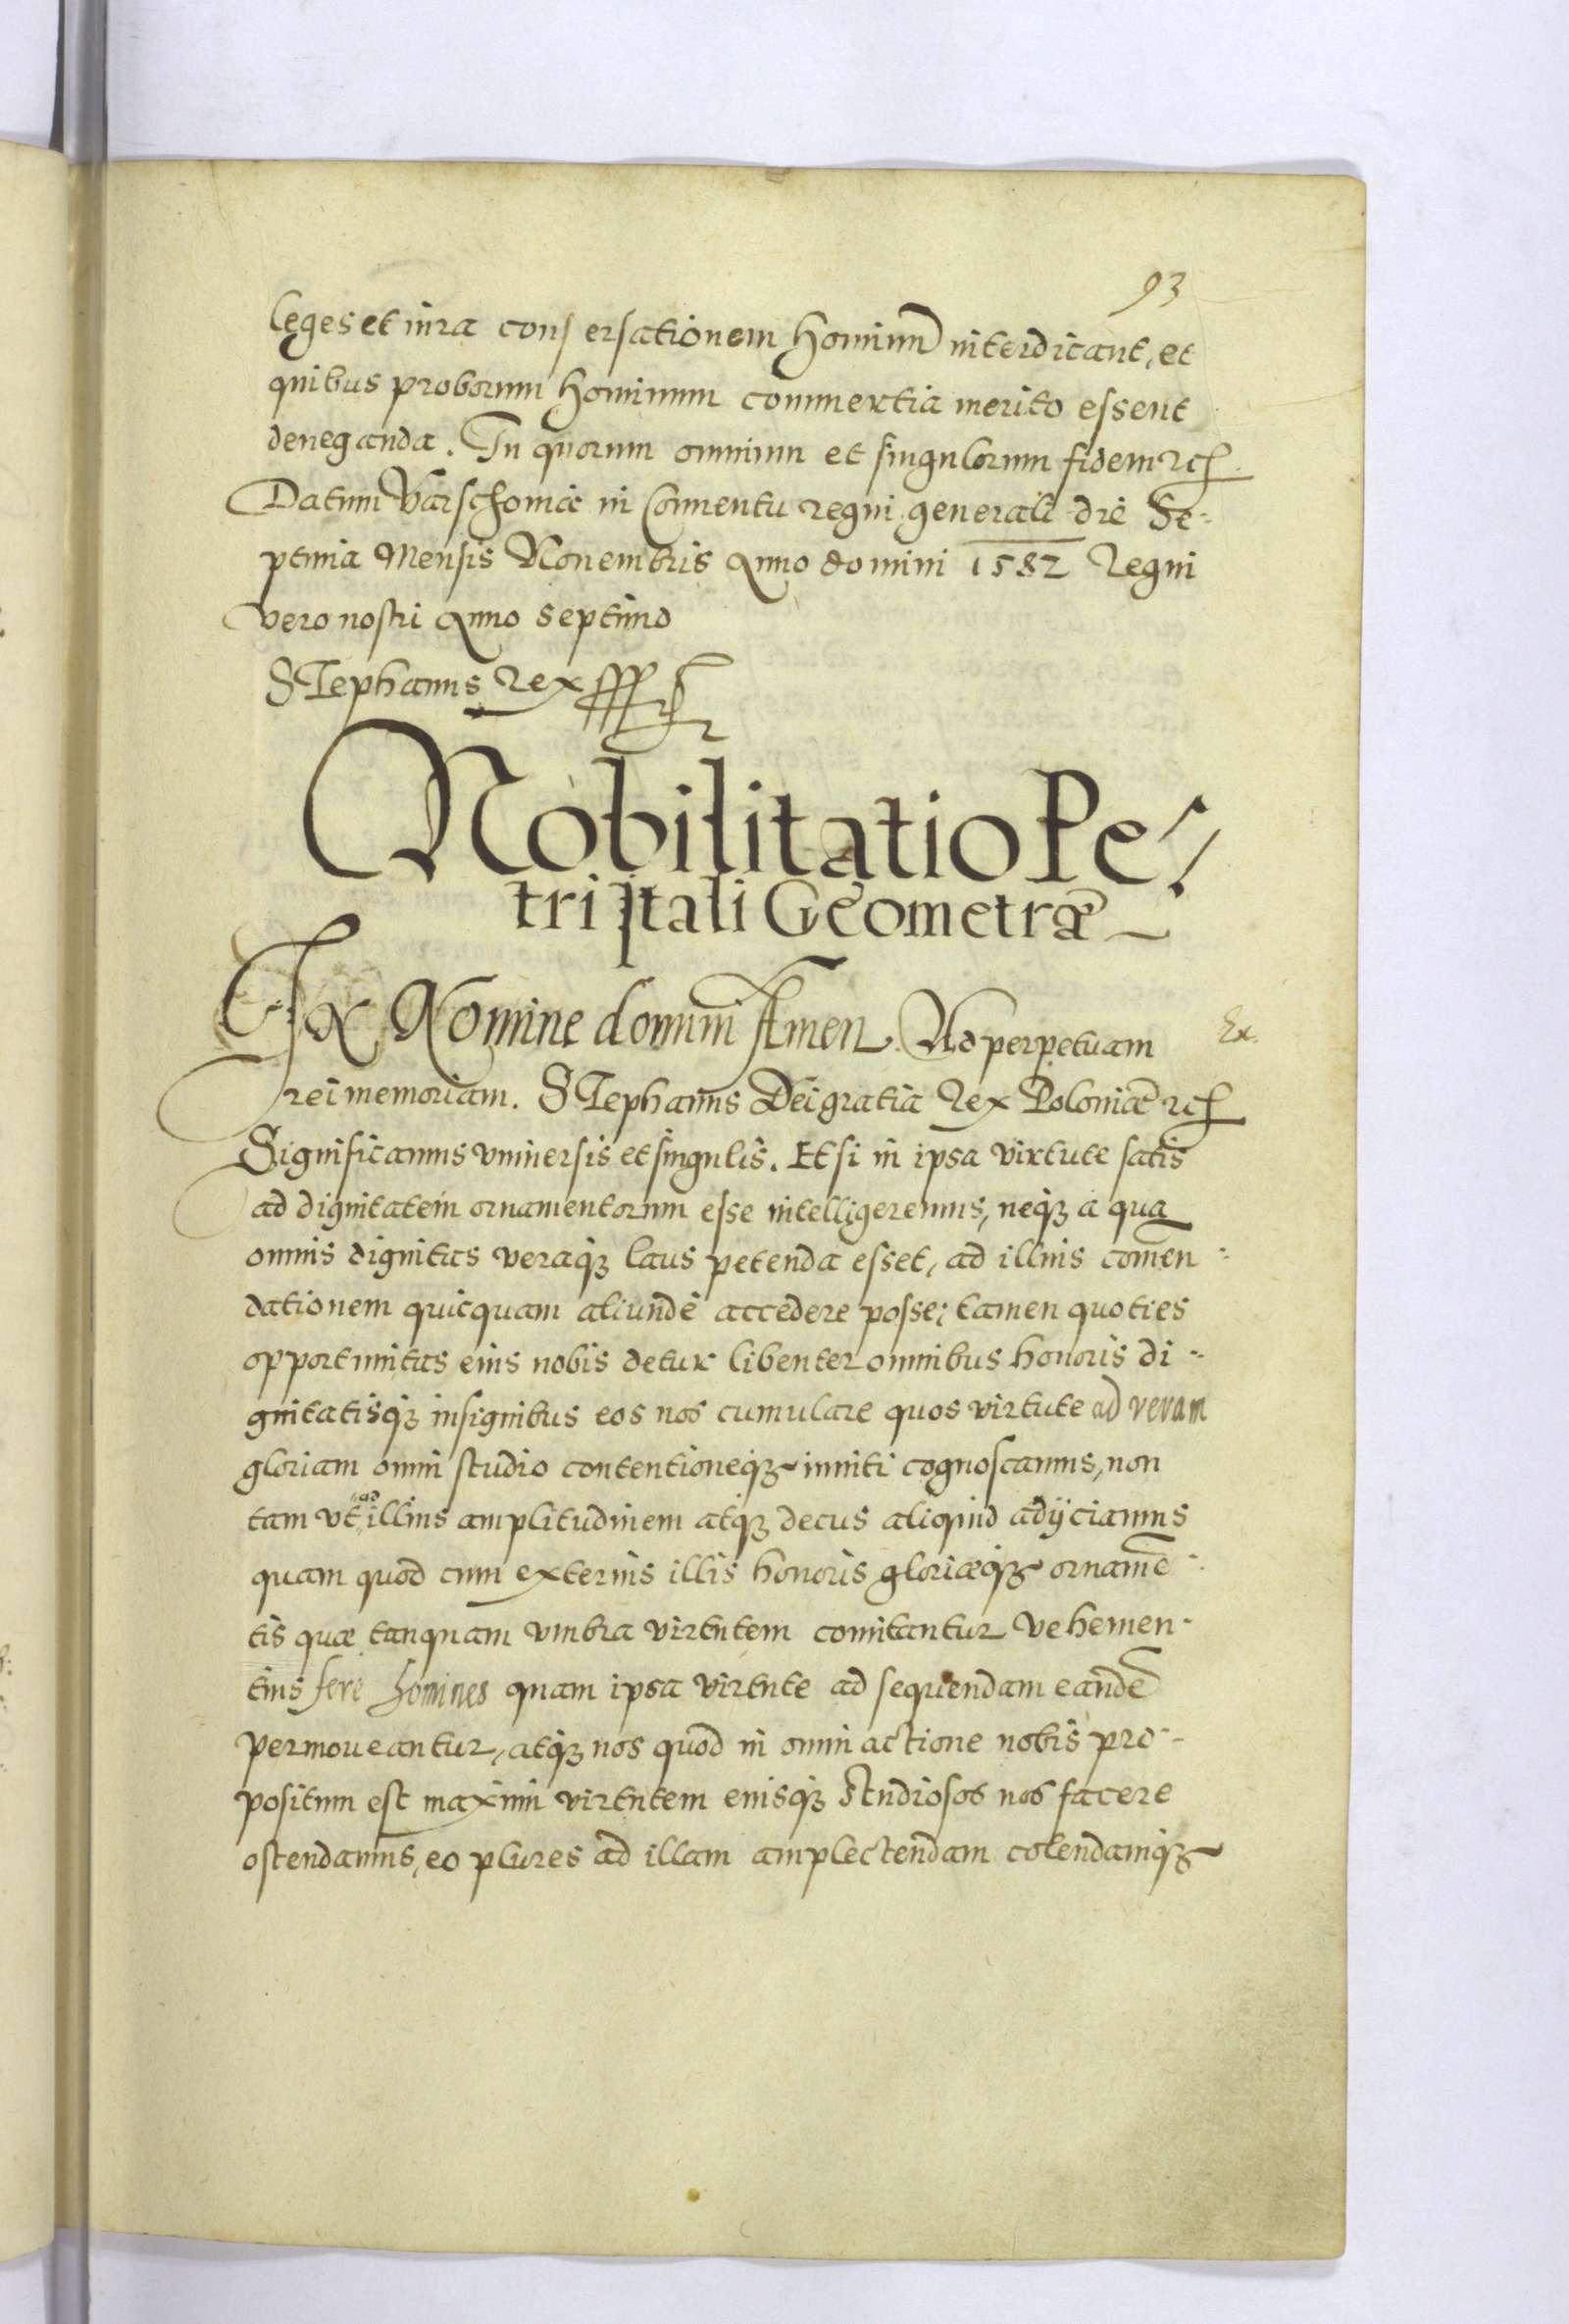 93
leges et iura consersationem hominum̄ interdicant, et
quibus proborum hominum commertia merito essent
deneganda. In quorum omnium et singulorum fidem etc.
Datum Varschouiæ in Conuentu regni generali die Se-
ptima Mensis Nouembris Anno domini 1582 Regni
vero nostri Anno septimo
STephanus Rex
Nobilitatio Pe-
tri Itali Geometræ
IN Nomine domini Amen. Ad perpetuam
Ex.
rei memoriam. STephanus Dei gratia Rex Poloniæ etc.
Significamus vniuersis et singulis. Etsi in ipsa virtute satis
ad dignitatem ornamentorum esse intelligeremus, neqꝫ a qua
omnis dignitas veraqꝫ laus petenda esset, ad illius com̄en-
dationem quicquam aliunde accedere posse; tamen quoties
opportunitas eius nobis detur libenter omnibus honoris di-
gnitatisqꝫ insignibus eos nos cumulare quos virtute ad veram
gloriam omni studio contentioneqꝫ inniti cognoscamus, non
tam vt ad illius amplitudinem atqꝫ decus aliquid adijciamus
quam quod cum externis illis honoris gloriæqꝫ ornamē-
tis quæ tanquam vmbra virtutem comitantur vehemen-
tius fere homines quam ipsa virtute ad sequendam eandē
permoueantur, atqꝫ nos quod in omni actione nobis pro-
positum est maximi virtutem eiusqꝫ studiosos nos facere
ostendamus, eo plures ad illam amplectendam colendamqꝫ